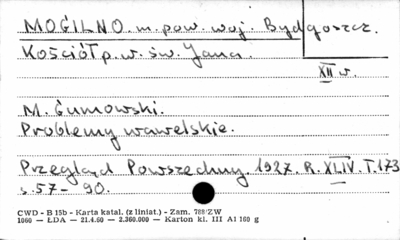 MOGILNO. m. pow. woj. Bydgoszcz.
Kościół p. w. św. Jana.
XII w.
M. Gumowski.
Problemy wawelskie.
Przegląd Powszechny. 1927. R. XLIV. T. 173
s. 57 - 90.
CWD - B 15b - Karta katal. (z liniat.) - Zam. 788/ZW
1060 — LDA — 21.4.60 — 2.360.000 — Karton kl. III A1 160 g